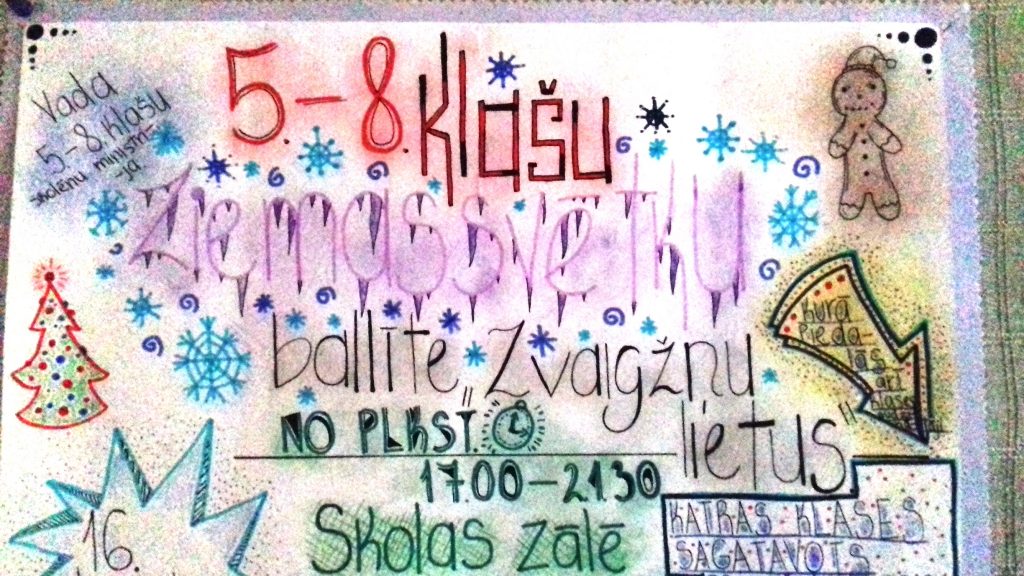 Vada
5-8. Klašu
skolēnu ministri-
-ja
5.-8. Klašu
Ziemassvētku
ballīte „Zvaigžņu
lietus"
NO PLKST.
17.00-21.30
Skolas zālē
16.
Kurā
Pieda-
lās
arī
klase
KATRAS KLASES
SAGATAVOTS